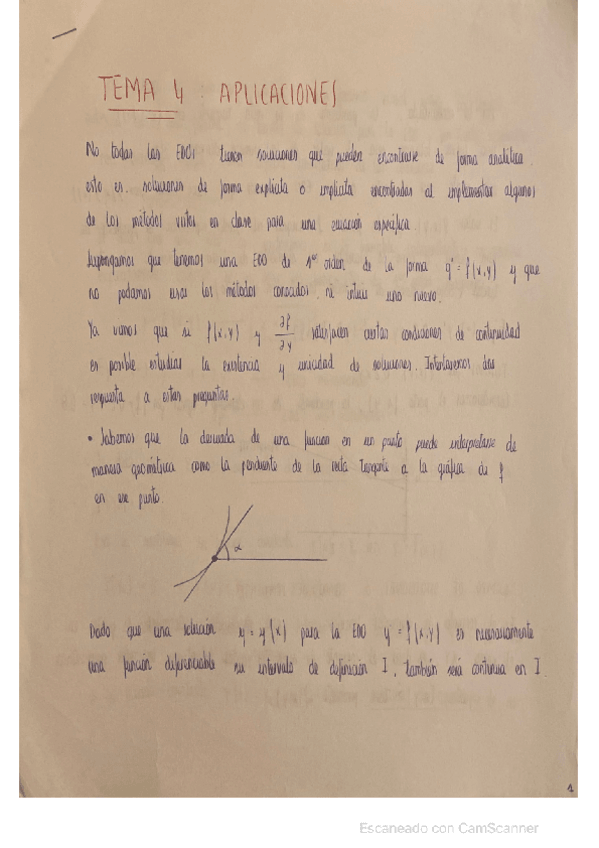 TEMA 4 : APLICACIONES
No todas las EDOs tienen soluciones que pueden encontrarse de forma analítica,
esto es, soluciones de forma explícita o implícita encontradas al implementar algunos
de los métodos vistos en clase para una ecuación específica.
Supongamos que tenemos una EDO de 1er orden de la forma y' = f(x,y) y que
no podamos usar los métodos conocidos, ni intuir uno nuevo.
Ya vimos que si f(x,y) y ∂f/∂y satisfacen ciertas condiciones de continuidad
es posible estudiar la existencia y unicidad de soluciones. Intentaremos dar
respuesta a estas preguntas.
• Sabemos que la derivada de una función en un punto puede interpretarse de
manera geométrica como la pendiente de la recta tangente a la gráfica de f
en ese punto.
α
Dado que una solución y = y(x) para la EDO y' = f(x,y) es necesariamente
una función diferenciable en su intervalo de definición I, también será continua en I.
1
Escaneado con CamScanner